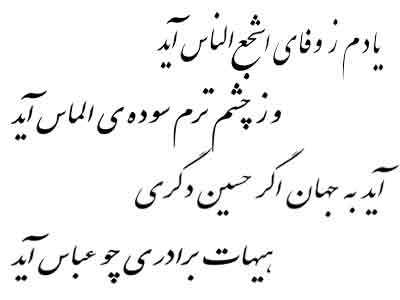 یادم ز وفای اشجع الناس آید
وز چشم ترم سوده ی الماس آید
آید به جهان اگر حسین دگری
هیهات برادری چو عباس آید